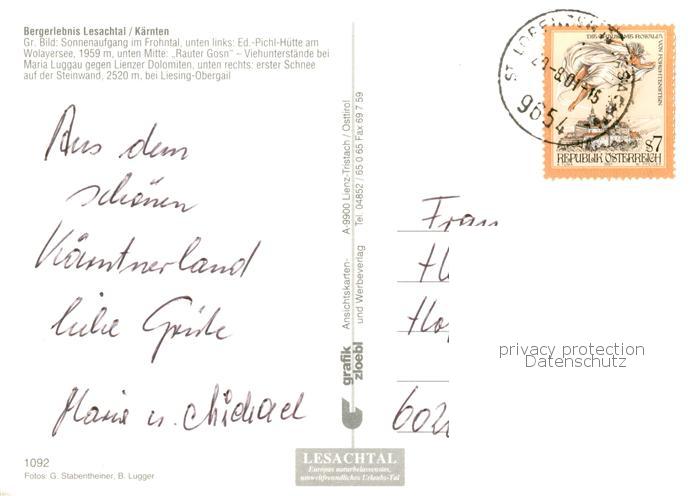 Bergerlebnis Lesachtal / Kärnten
Gr. Bild: Sonnenaufgang im Frohntal, unten links: Ed.-Pichl-Hütte am
Wolayersee, 1959 m, unten Mitte: „Rauter Gosn" – Viehunterstände bei
Maria Luggau gegen Lienzer Dolomiten, unten rechts: erster Schnee
auf der Steinwand, 2520 m, bei Liesing-Obergail
Aus dem
schönen
Kärntnerland
liebe Grüße
Maria u. Michael
1092
Fotos: G. Stabentheiner, B. Lugger
grafik
zloebl
Ansichtskarten-
und Werbeverlag
A-9900 Lienz-Tristach / Osttirol
Tel. 04852 / 65 0 65 Fax 69 7 59
LESACHTAL
Europas naturbelassenstes,
umweltfreundliches Urlaubs-Tal
9654
S7
REPUBLIK ÖSTERREICH
Frau
602
privacy protection
Datenschutz